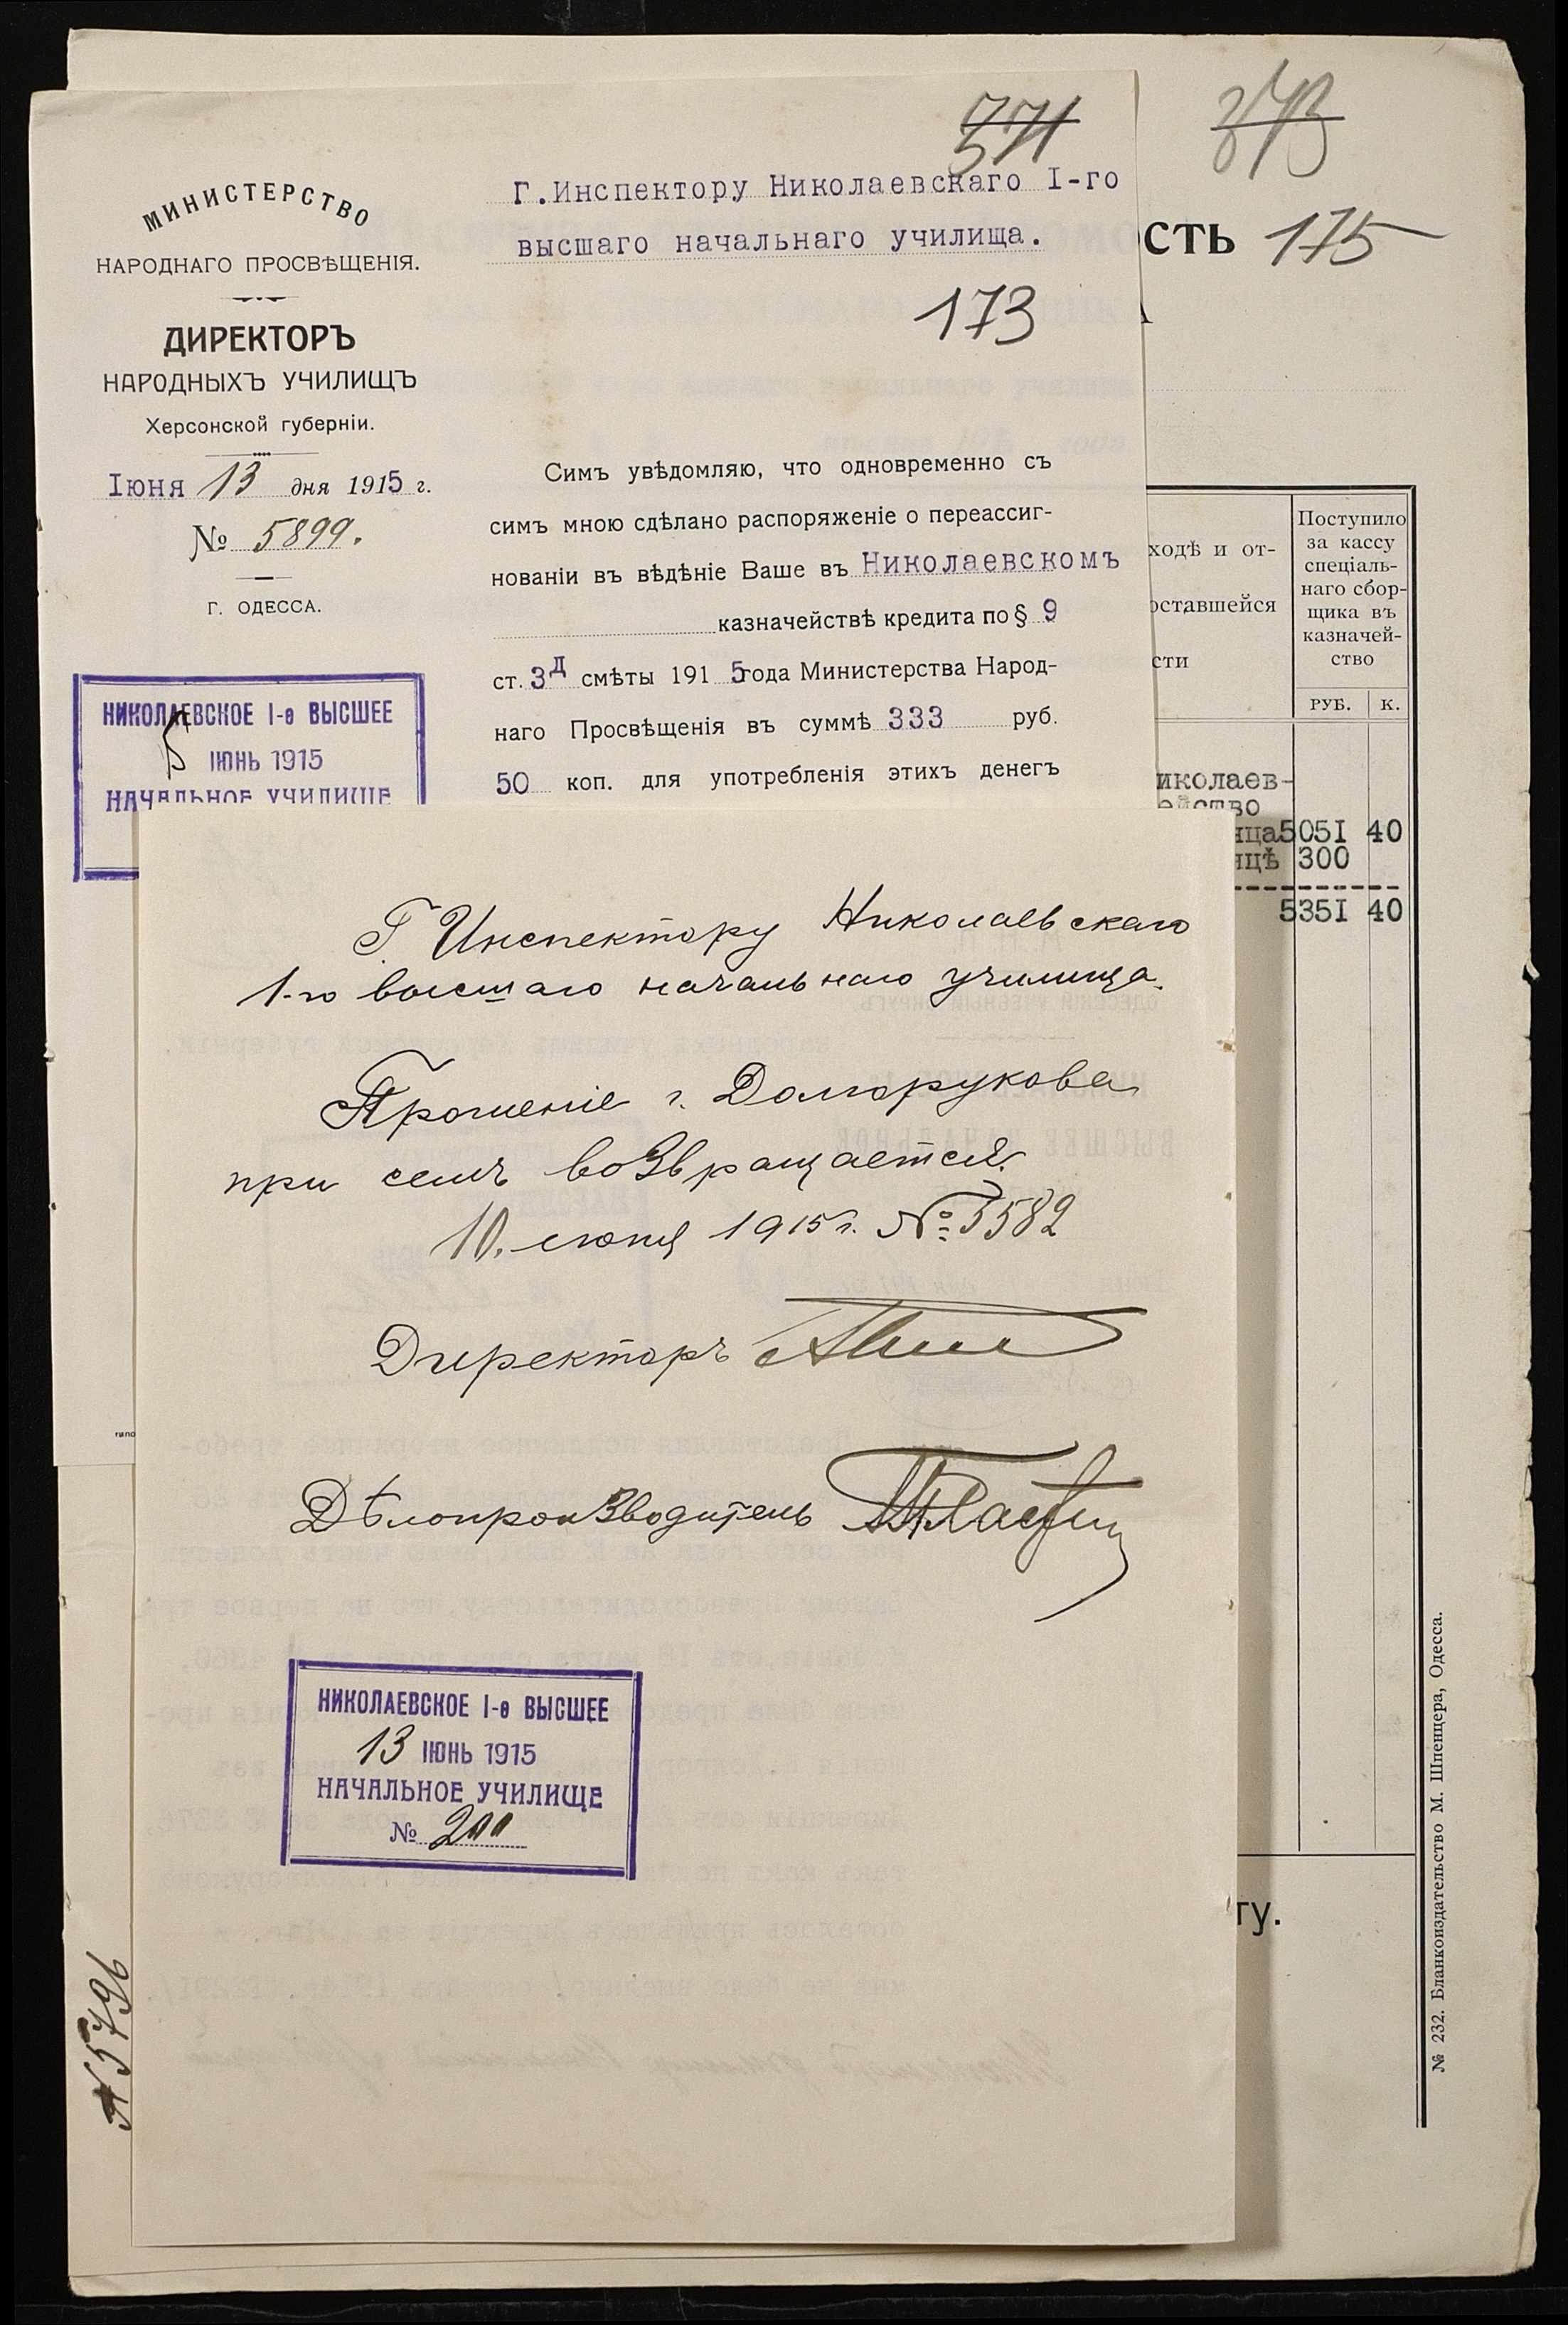 371
373
МИНИСТЕРСТВО
НАРОДНАГО ПРОСВѢЩЕНІЯ.
ДИРЕКТОРЪ
НАРОДНЫХЪ УЧИЛИЩЪ
Херсонской губерніи.
Іюня 13 дня 1915 г.
№ 5899.
Г. ОДЕССА.
Г.Инспектору Николаевскаго I-го
высшаго начальнаго училища.
173
Симъ увѣдомляю, что одновременно съ
симъ мною сдѣлано распоряженіе о переассиг-
нованіи въ вѣдѣніе Ваше въ Николаевскомъ
казначействѣ кредита по § 9
ст. 3Д смѣты 1915 года Министерства Народ-
наго Просвѣщенія въ суммѣ 333 руб.
50 коп. для употребленія этихъ денегъ
НИКОЛАЕВСКОЕ I-е ВЫСШЕЕ
ІЮНЬ 1915
НАЧАЛЬНОЕ УЧИЛИЩЕ
СТЬ 175
ходѣ и от-
оставшейся
сти
Поступило
за кассу
спеціаль-
наго сбор-
щика въ
казначей-
ство
РУБ. К.
иколаев-
ейство
ица 505I 40
ицѣ 300
535I 40
Г. Инспектору Николаевскаго
1-го высшаго начальнаго училища.
Прошеніе г. Долгорукова
при семъ возвращается.
10. іюня 1915 г. № 5582
Директоръ
Дѣлопроизводитель
НИКОЛАЕВСКОЕ I-е ВЫСШЕЕ
13 ІЮНЬ 1915
НАЧАЛЬНОЕ УЧИЛИЩЕ
№ 200
№ 5796
гу.
№ 232. Бланкоиздательство М. Шпенцера, Одесса.